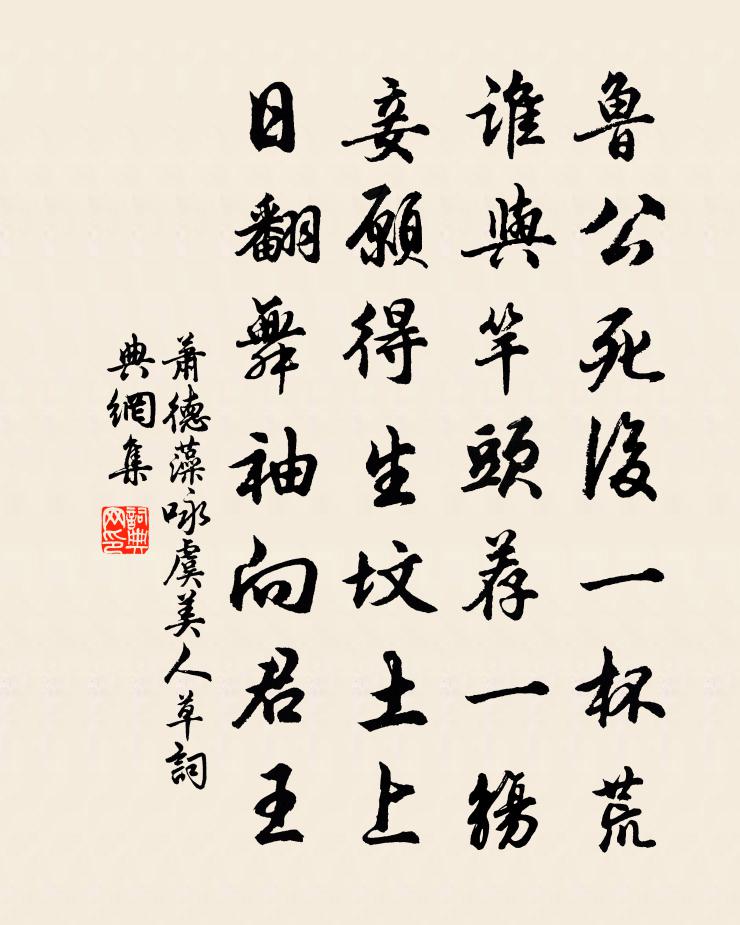 魯公死後一杯荒
誰與竿頭荐一觴
妾願得生坟土上
日翻舞袖向君王
蕭德藻咏虞美人草詞
典網集
詞典
网印